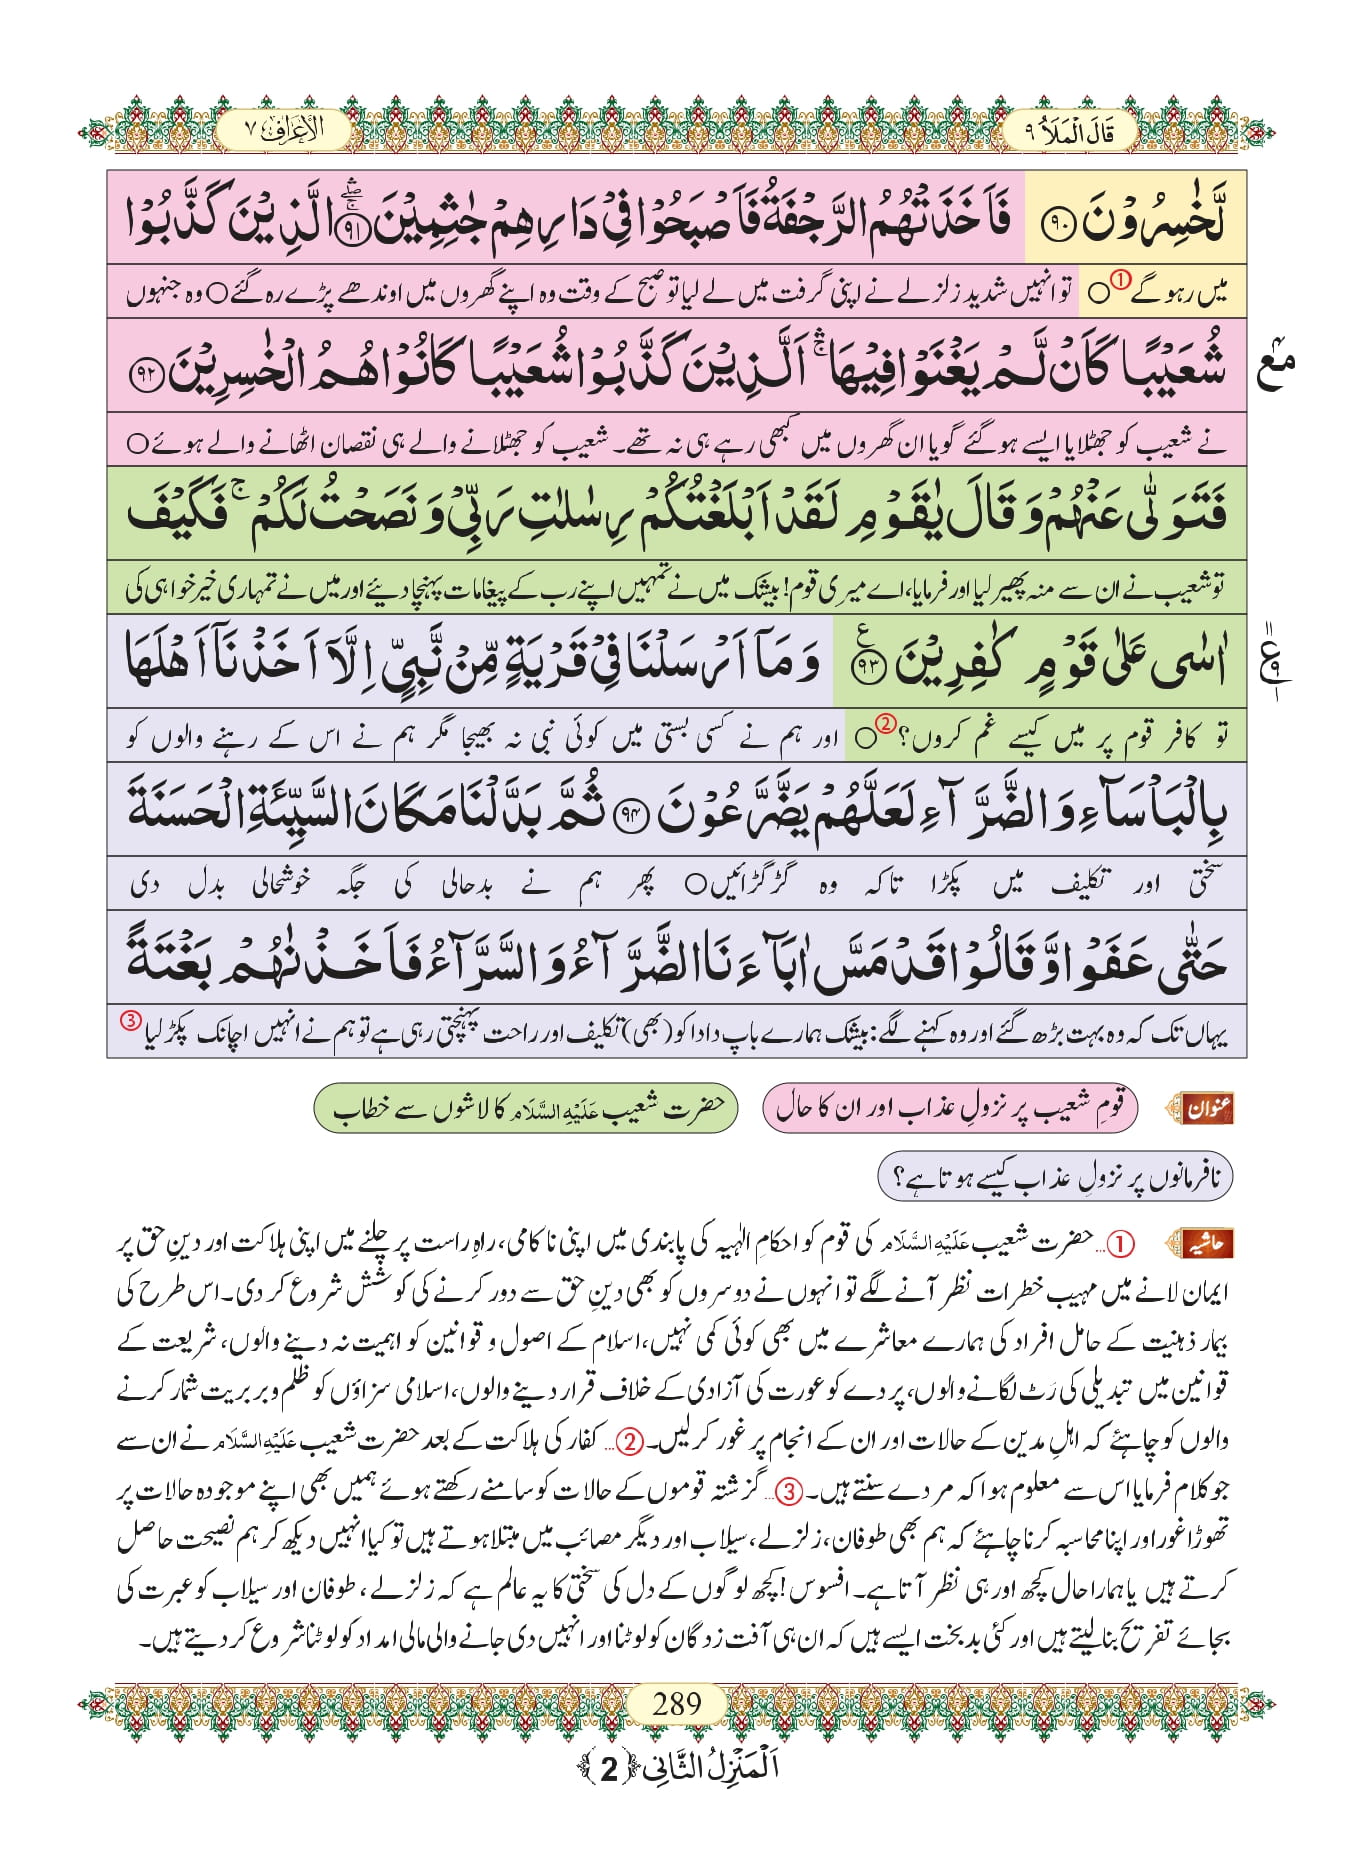 قَالَ الْمَلَاُ ۹
الْاَعْرَاف ۷
لَّخٰسِرُوْنَ ﴿۹۰﴾ فَاَخَذَتْهُمُ الرَّجْفَةُ فَاَصْبَحُوْا فِیْ دَارِهِمْ جٰثِمِیْنَ ﴿۹۱﴾ الَّذِیْنَ كَذَّبُوْا
میں رہو گے ① ○ تو انہیں شدید زلزلے نے اپنی گرفت میں لے لیا تو صبح کے وقت وہ اپنے گھروں میں اوندھے پڑے رہ گئے ○ وہ جنہوں
شُعَیْبًا كَاَنْ لَّمْ یَغْنَوْا فِیْهَا ۚۛ اَلَّذِیْنَ كَذَّبُوْا شُعَیْبًا كَانُوْا هُمُ الْخٰسِرِیْنَ ﴿۹۲﴾
مع
نے شعیب کو جھٹلایا ایسے ہوگئے گویا ان گھروں میں کبھی رہے ہی نہ تھے۔ شعیب کو جھٹلانے والے ہی نقصان اٹھانے والے ہوئے ○
فَتَوَلّٰى عَنْهُمْ وَ قَالَ یٰقَوْمِ لَقَدْ اَبْلَغْتُكُمْ رِسٰلٰتِ رَبِّیْ وَ نَصَحْتُ لَكُمْ ۚ فَكَیْفَ
تو شعیب نے ان سے منہ پھیر لیا اور فرمایا، اے میری قوم! بیشک میں نے تمہیں اپنے رب کے پیغامات پہنچا دیئے اور میں نے تمہاری خیر خواہی کی
اٰسٰى عَلٰى قَوْمٍ كٰفِرِیْنَ ﴿۹۳﴾ وَ مَاۤ اَرْسَلْنَا فِیْ قَرْیَةٍ مِّنْ نَّبِیٍّ اِلَّاۤ اَخَذْنَاۤ اَهْلَهَا
تو کافر قوم پر میں کیسے غم کروں؟ ② ○ اور ہم نے کسی بستی میں کوئی نبی نہ بھیجا مگر ہم نے اس کے رہنے والوں کو
بِالْبَاْسَآءِ وَ الضَّرَّآءِ لَعَلَّهُمْ یَضَّرَّعُوْنَ ﴿۹۴﴾ ثُمَّ بَدَّلْنَا مَكَانَ السَّیِّئَةِ الْحَسَنَةَ
سختی اور تکلیف میں پکڑا تاکہ وہ گڑگڑائیں ○ پھر ہم نے بدحالی کی جگہ خوشحالی بدل دی
حَتّٰى عَفَوْا وَّ قَالُوْا قَدْ مَسَّ اٰبَآءَنَا الضَّرَّآءُ وَ السَّرَّآءُ فَاَخَذْنٰهُمْ بَغْتَةً
یہاں تک کہ وہ بہت بڑھ گئے اور وہ کہنے لگے: بیشک ہمارے باپ دادا کو (بھی) تکلیف اور راحت پہنچتی رہی ہے تو ہم نے انہیں اچانک پکڑ لیا ③
عنوان قومِ شعیب پر نزولِ عذاب اور ان کا حال حضرت شعیب عَلَیْهِ السَّلَام کا لاشوں سے خطاب
نافرمانوں پر نزولِ عذاب کیسے ہوتا ہے؟
حاشیہ ①… حضرت شعیب عَلَیْهِ السَّلَام کی قوم کو احکامِ الٰہیہ کی پابندی میں اپنی ناکامی، راہِ راست پر چلنے میں اپنی ہلاکت اور دینِ حق پر
ایمان لانے میں مہیب خطرات نظر آنے لگے تو انہوں نے دوسروں کو بھی دینِ حق سے دور کرنے کی کوشش شروع کر دی۔ اس طرح کی
بیمار ذہنیت کے حامل افراد کی ہمارے معاشرے میں بھی کوئی کمی نہیں، اسلام کے اصول و قوانین کو اہمیت نہ دینے والوں، شریعت کے
قوانین میں تبدیلی کی رَٹ لگانے والوں، پردے کو عورت کی آزادی کے خلاف قرار دینے والوں، اسلامی سزاؤں کو ظلم و بربریت شمار کرنے
والوں کو چاہئے کہ اہلِ مدین کے حالات اور ان کے انجام پر غور کر لیں۔ ②… کفار کی ہلاکت کے بعد حضرت شعیب عَلَیْهِ السَّلَام نے ان سے
جو کلام فرمایا اس سے معلوم ہوا کہ مردے سنتے ہیں۔ ③… گزشتہ قوموں کے حالات کو سامنے رکھتے ہوئے ہمیں بھی اپنے موجودہ حالات پر
تھوڑا غور اور اپنا محاسبہ کرنا چاہئے کہ ہم بھی طوفان، زلزلے، سیلاب اور دیگر مصائب میں مبتلا ہوتے ہیں تو کیا انہیں دیکھ کر ہم نصیحت حاصل
کرتے ہیں یا ہمارا حال کچھ اور ہی نظر آتا ہے۔ افسوس! کچھ لوگوں کے دل کی سختی کا یہ عالم ہے کہ زلزلے، طوفان اور سیلاب کو عبرت کی
بجائے تفریح بنا لیتے ہیں اور کئی بدبخت ایسے ہیں کہ ان ہی آفت زدگان کو لوٹنا اور انہیں دی جانے والی مالی امداد کو لوٹنا شروع کر دیتے ہیں۔
289
اَلْمَنْزِلُ الثَّانِی ﴿2﴾